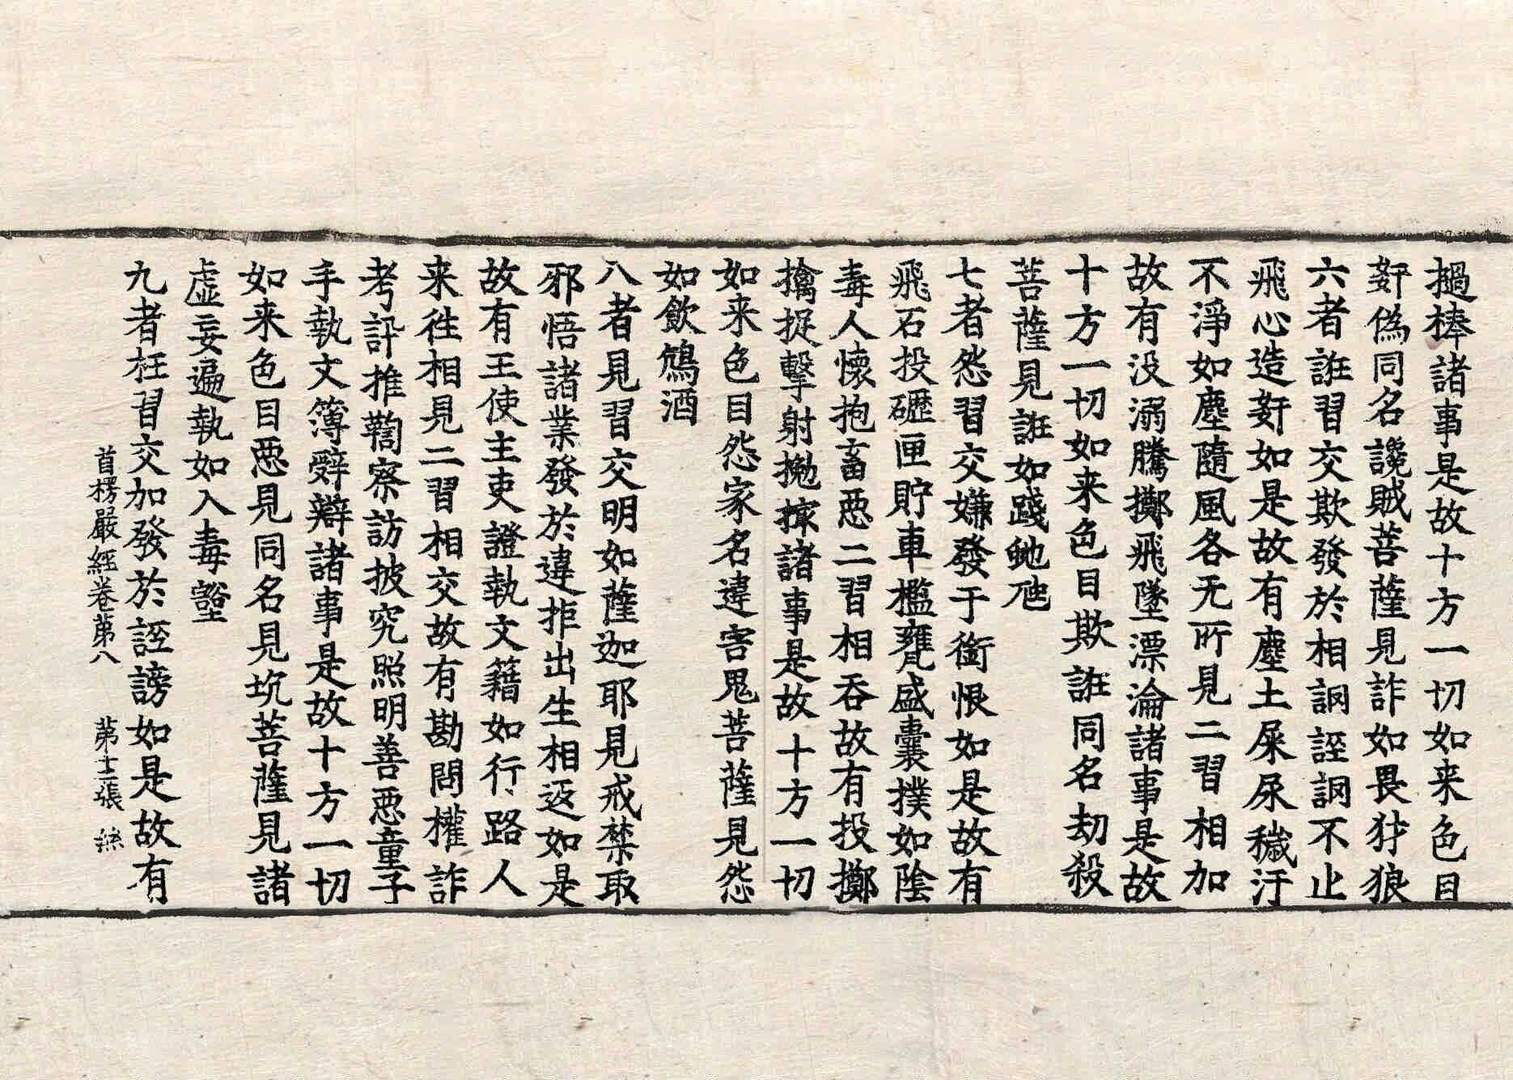 撾棒諸事是故十方一切如来色目
姧偽同名讒賊菩薩見詐如畏犲狼
六者誑習交欺發於相誷誣誷不止
飛心造姧如是故有塵土屎尿穢汙
不淨如塵隨風各无所見二習相加
故有没溺騰擲飛墜漂淪諸事是故
十方一切如来色目欺誑同名劫殺
菩薩見誑如踐虵虺
七者怨習交嫌發于銜恨如是故有
飛石投礰匣貯車檻甕盛囊撲如陰
毒人懷抱畜惡二習相吞故有投擲
擒捉擊射拋撮諸事是故十方一切
如来色目怨家名違害鬼菩薩見怨
如飲鴆酒
八者見習交明如薩迦耶見戒禁取
邪悟諸業發於違拒出生相返如是
故有王使主吏證執文籍如行路人
来往相見二習相交故有勘問權詐
考訊推鞫察訪披究照明善惡童子
手執文簿辭辯諸事是故十方一切
如来色目惡見同名見坑菩薩見諸
虛妄遍執如入毒壑
九者枉習交加發於誣謗如是故有
首楞嚴經卷第八 第十二張 絲